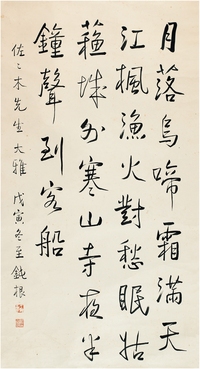 月落烏啼霜滿天
江楓漁火對愁眠姑
蘇城外寒山寺夜半
鐘聲到客船
佐々木先生大雅 戊寅冬至 鈍根